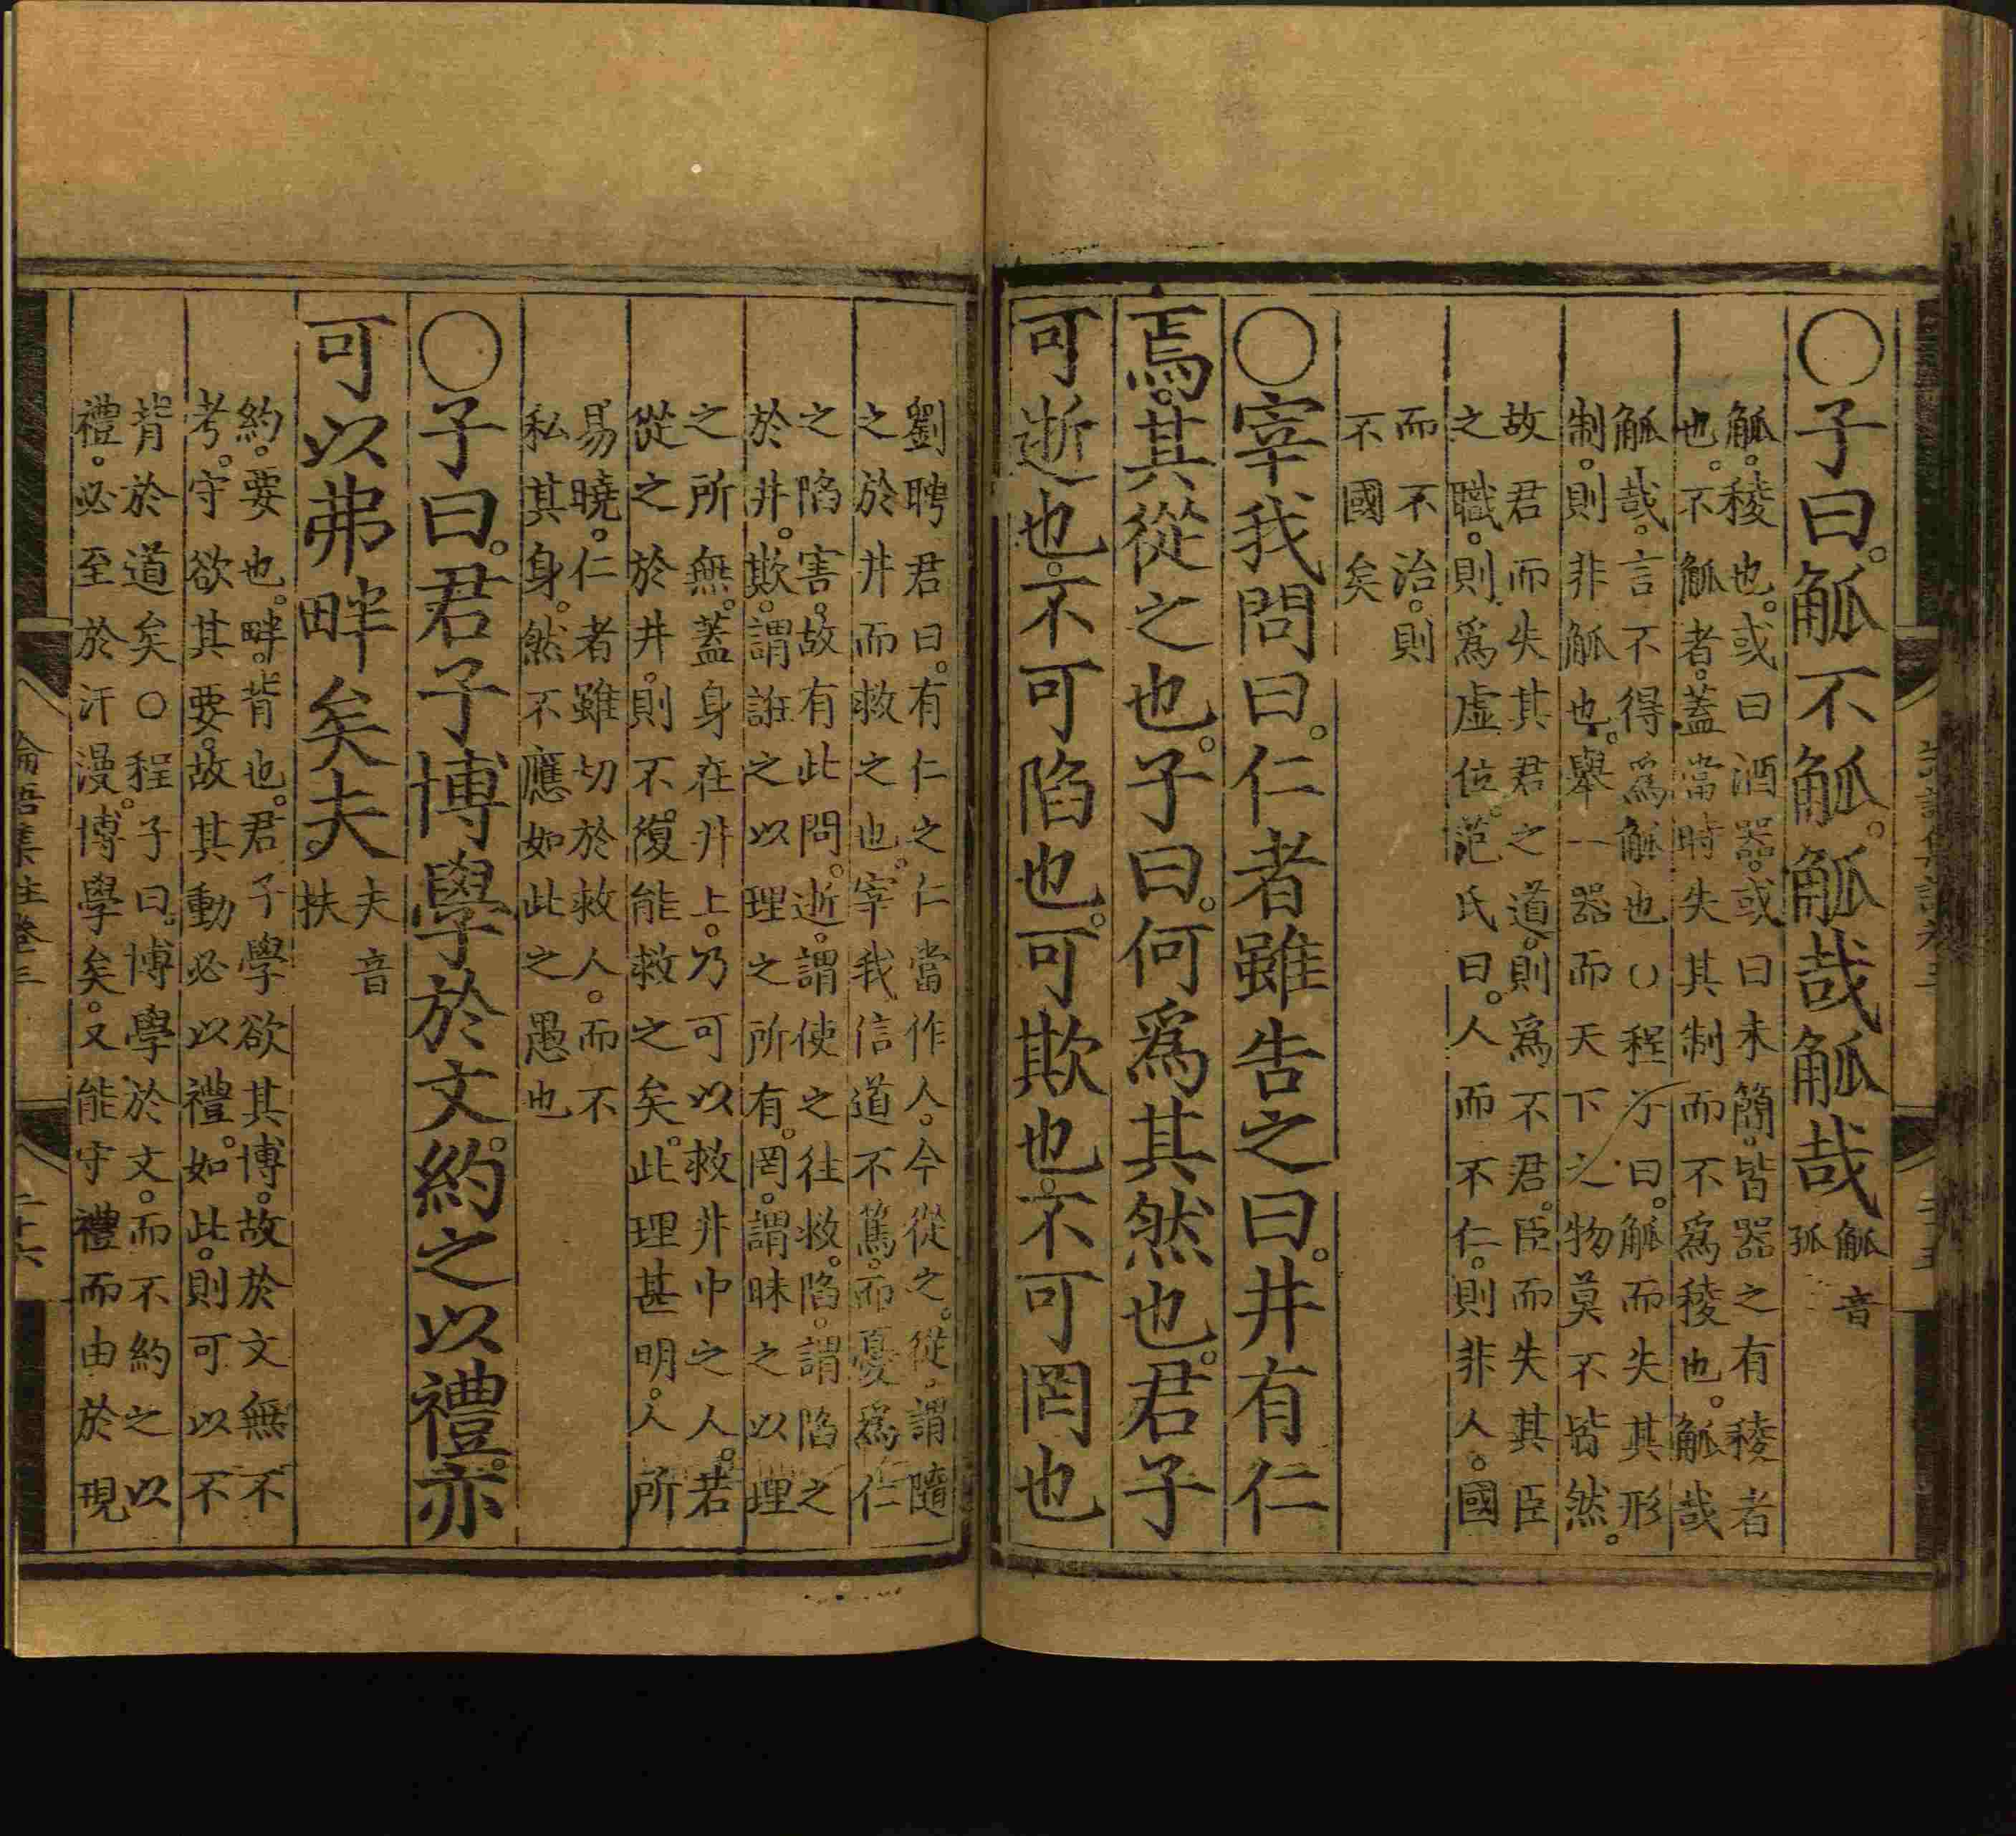 ○子曰。觚不觚。觚哉觚哉觚音
孤
觚。稜也。或曰酒器。或曰木簡。皆器之有稜者
也。不觚者。蓋當時失其制而不爲稜也。觚哉
觚哉。言不得爲觚也○程子曰。觚而失其形
制。則非觚也。舉一器而天下之物莫不皆然。
故君而失其君之道。則爲不君。臣而失其臣
之職。則爲虛位。范氏曰。人而不仁。則非人。國
而不治。則
不國矣
○宰我問曰。仁者雖告之曰。井有仁
焉。其從之也。子曰。何爲其然也。君子
可逝也。不可陷也。可欺也。不可罔也
劉聘君曰。有仁之仁當作人。今從之。從。謂隨
之於井而救之也。宰我信道不篤。而憂爲仁
之陷害。故有此問。逝。謂使之往救。陷。謂陷之
於井。欺。謂誑之以理之所有。罔。謂昧之以理
之所無。蓋身在井上。乃可以救井中之人。若
從之於井。則不復能救之矣。此理甚明。人所
易曉。仁者雖切於救人。而不
私其身。然不應如此之愚也
○子曰。君子博學於文。約之以禮。亦
可以弗畔矣夫夫音
扶
約。要也。畔。背也。君子學欲其博。故於文無不
考。守欲其要。故其動必以禮。如此。則可以不
背於道矣○程子曰。博學於文。而不約之以
禮。必至於汗漫。博學矣。又能守禮而由於規
論語集註卷三
二十六